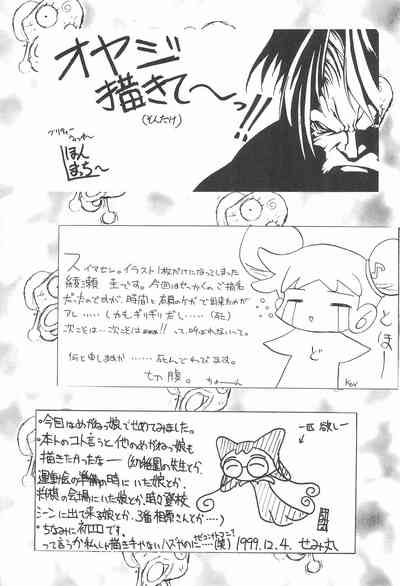 オヤジ
描きて〜っ!!
(そんだけ)
ほん
まち〜
スイマセン。イラスト1枚だけになってしまった
綾瀬 圭です。今回はせっかくのご指名
だったのですが、時間と右肩のケガで出来たのが
アレ……(しかもギリギリだし……(死)
次こそは…次こそは
って、呼ばれないって。
何と申しますか……死んでわびます。
切腹。
とほー
ど
♪
・今回はめがねっ娘でせめてみました。
・本トのコト言うと他のめがねっ娘も
描きたかったなー(幼稚園の先生とか、
運動会の準備の時にいた娘とか、
将棋の会場にいた娘とか、時々登校
シーンに出て来る娘とか、3番相原さんとか……)
・ちなみに初回です。
って言うか私しか描きそうもないハズかめに…(笑)
1999.12.4. せみ丸
一匹欲しー